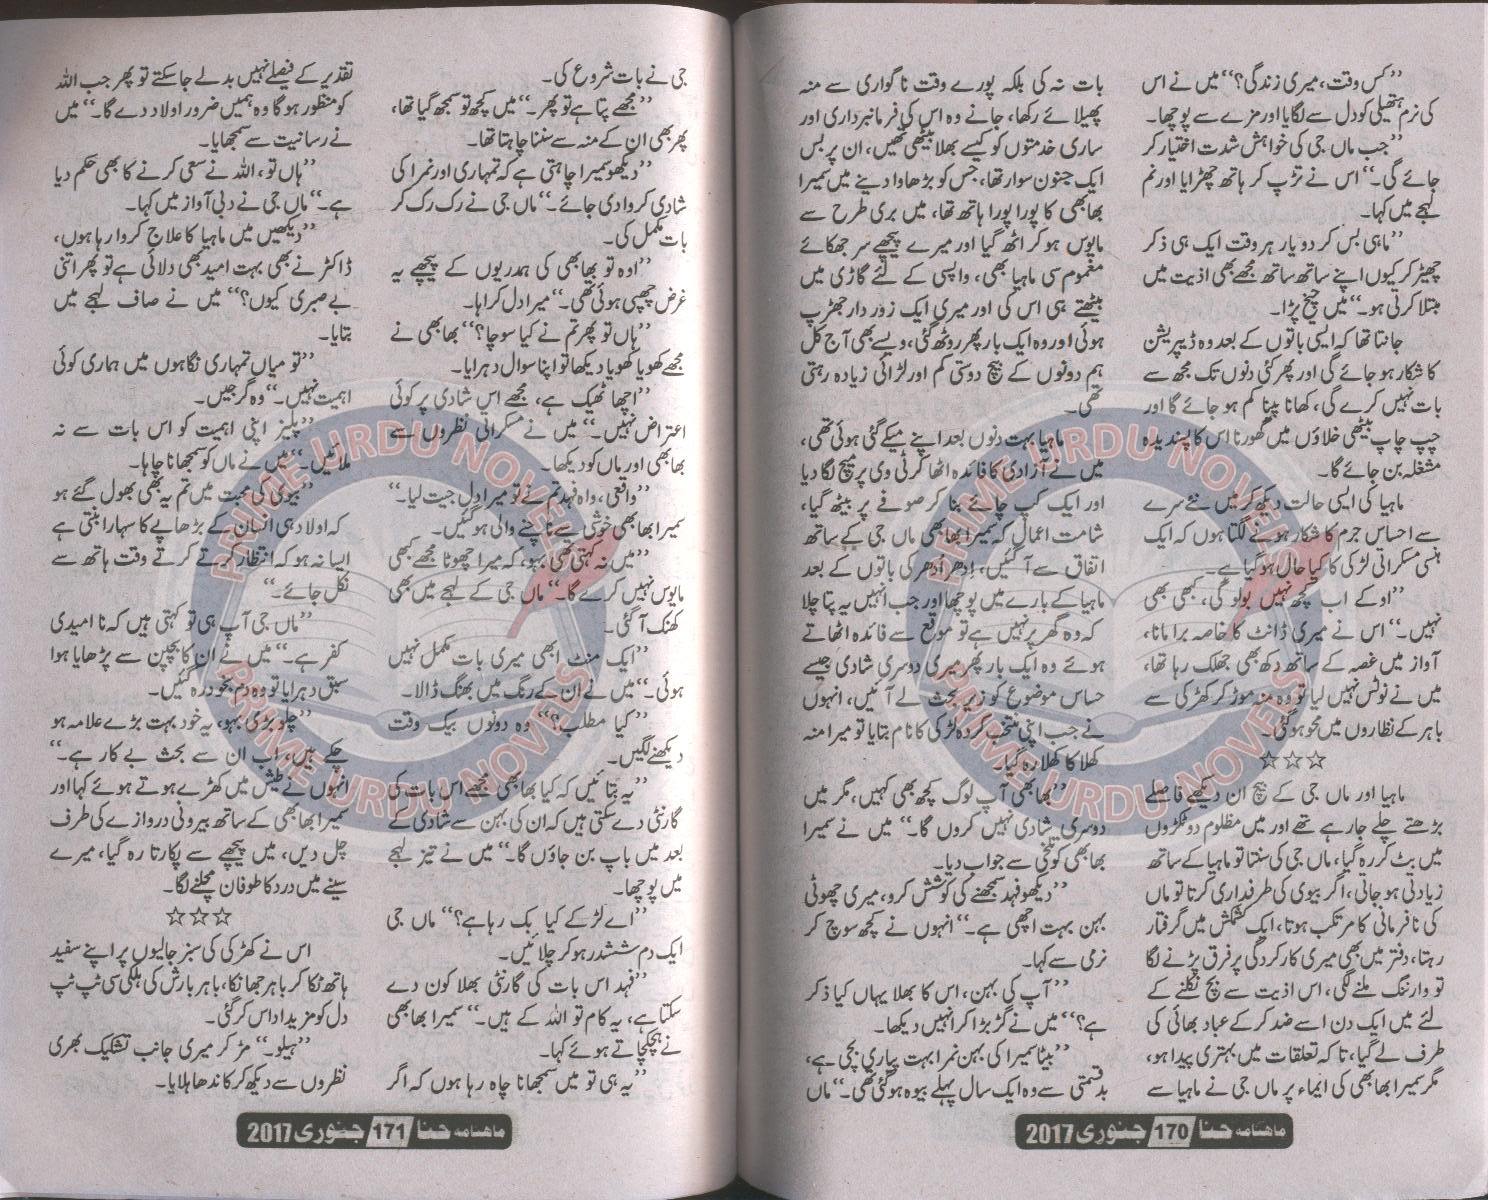 ’’کس وقت، میری زندگی؟‘‘ میں نے اس
کی نرم ہتھیلی کو دل سے لگایا اور مزے سے پوچھا۔
’’جب ماں جی کی خواہش شدت اختیار کر
جائے گی۔‘‘ اس نے تڑپ کر ہاتھ چھڑایا اور نم
لہجے میں کہا۔
’’ماہی بس کر دو یار ہر وقت ایک ہی ذکر
چھیڑ کر کیوں اپنے ساتھ ساتھ مجھے بھی اذیت میں
مبتلا کرتی ہو۔‘‘ میں چیخ پڑا۔
جانتا تھا کہ ایسی باتوں کے بعد وہ ڈیپریشن
کا شکار ہو جائے گی اور پھر کئی دنوں تک مجھ سے
بات نہیں کرے گی، کھانا پینا کم ہو جائے گا اور
چپ چاپ بیٹھی خلاؤں میں گھورنا اس کا پسندیدہ
مشغلہ بن جائے گا۔
ماہیا کی ایسی حالت دیکھ کر میں نئے سرے
سے احساس جرم کا شکار ہونے لگتا ہوں کہ ایک
ہنسی مسکراتی لڑکی کا کیا حال ہو گیا ہے۔
’’اوکے اب کچھ نہیں بولو گی، کبھی بھی
نہیں۔‘‘ اس نے میری ڈانٹ کا خاصہ برا مانا،
آواز میں غصہ کے ساتھ دکھ بھی جھلک رہا تھا،
میں نے نوٹس نہیں لیا تو وہ منہ موڑ کر کھڑکی سے
باہر کے نظاروں میں محو ہو گئی۔
☆☆☆
ماہیا اور ماں جی کے بیچ ان دیکھے فاصلے
بڑھتے چلے جا رہے تھے اور میں مظلوم دو ٹکڑوں
میں بٹ کر رہ گیا، ماں جی کی سنتا تو ماہیا کے ساتھ
زیادتی ہو جاتی، اگر بیوی کی طرفداری کرتا تو ماں
کی نافرمانی کا مرتکب ہوتا، ایک کشمکش میں گرفتار
رہتا، دفتر میں بھی میری کارکردگی پر فرق پڑنے لگا
تو وارننگ ملنے لگی، اس اذیت سے بچ نکلنے کے
لئے میں ایک دن اسے ضد کر کے عباد بھائی کی
طرف لے گیا، تاکہ تعلقات میں بہتری پیدا ہو،
مگر سمیرا بھابھی کی ایماء پر ماں جی نے ماہیا سے
بات نہ کی بلکہ پورے وقت ناگواری سے منہ
پھیلائے رکھا، جانے وہ اس کی فرمانبرداری اور
ساری خدمتوں کو کیسے بھلا بیٹھی تھیں، ان پر بس
ایک جنون سوار تھا، جس کو بڑھاوا دینے میں سمیرا
بھابھی کا پورا پورا ہاتھ تھا، میں بری طرح سے
مایوس ہو کر اٹھ گیا اور میرے پیچھے سر جھکائے
مغموم سی ماہیا بھی، واپسی کے لئے گاڑی میں
بیٹھتے ہی اس کی اور میری ایک زور دار جھڑپ
ہوئی اور وہ ایک بار پھر روٹھ گئی، ویسے بھی آج کل
ہم دونوں کے بیچ دوستی کم اور لڑائی زیادہ رہتی
تھی۔
ماہیا بہت دنوں بعد اپنے میکے گئی ہوئی تھی،
میں نے آزادی کا فائدہ اٹھا کر ٹی وی پر میچ لگا دیا
اور ایک کپ چائے بنا کر صوفے پر بیٹھ گیا،
شامت اعمال کہ سمیرا بھابھی ماں جی کے ساتھ
اتفاق سے آ گئیں، اِدھر اُدھر کی باتوں کے بعد
ماہیا کے بارے میں پوچھا اور جب انہیں یہ پتا چلا
کہ وہ گھر پر نہیں ہے تو موقع سے فائدہ اٹھاتے
ہوئے وہ ایک بار پھر میری دوسری شادی جیسے
حساس موضوع کو زیر بحث لے آئیں، انہوں
نے جب اپنی منتخب کردہ لڑکی کا نام بتایا تو میرا منہ
کھلا کا کھلا رہ گیا۔
’’بھابھی آپ لوگ کچھ بھی کہیں، مگر میں
دوسری شادی نہیں کروں گا۔‘‘ میں نے سمیرا
بھابھی کو تلخی سے جواب دیا۔
’’دیکھو فہد سمجھنے کی کوشش کرو، میری چھوٹی
بہن بہت اچھی ہے۔‘‘ انہوں نے کچھ سوچ کر
نرمی سے کہا۔
’’آپ کی بہن، اس کا بھلا یہاں کیا ذکر
ہے؟‘‘ میں نے گڑبڑا کر انہیں دیکھا۔
’’بیٹا سمیرا کی بہن نمرا بہت پیاری بچی ہے،
بدقسمتی سے وہ ایک سال پہلے بیوہ ہو گئی تھی۔‘‘ ماں
ماہنامہ حنا 170 جنوری 2017
جی نے بات شروع کی۔
’’مجھے پتا ہے تو پھر۔‘‘ میں کچھ تو سمجھ گیا تھا،
پھر بھی ان کے منہ سے سننا چاہتا تھا۔
’’دیکھو سمیرا چاہتی ہے کہ تمہاری اور نمرا کی
شادی کروا دی جائے۔‘‘ ماں جی نے رک رک کر
بات مکمل کی۔
’’اوہ تو بھابھی کی ہمدریوں کے پیچھے یہ
غرض چھپی ہوئی تھی۔‘‘ میرا دل کراہا۔
’’ہاں تو پھر تم نے کیا سوچا؟‘‘ بھابھی نے
مجھے کھویا کھویا دیکھا تو اپنا سوال دہرایا۔
’’اچھا ٹھیک ہے، مجھے اس شادی پر کوئی
اعتراض نہیں۔‘‘ میں نے مسکراتی نظروں سے
بھابھی اور ماں کو دیکھا۔
’’واقعی، واہ فہد تم نے تو میرا دل جیت لیا۔‘‘
سمیرا بھابھی خوشی سے ناچنے والی ہو گئیں۔
’’میں نہ کہتی تھی بہو، کہ میرا چھوٹا مجھے کبھی
مایوس نہیں کرے گا۔‘‘ ماں جی کے لہجے میں بھی
کھنک آ گئی۔
’’ایک منٹ ابھی میری بات مکمل نہیں
ہوئی۔‘‘ میں نے ان کے رنگ میں بھنگ ڈالا۔
’’کیا مطلب؟‘‘ وہ دونوں بیک وقت
دیکھنے لگیں۔
’’یہ بتائیں کہ کیا بھابھی مجھے اس بات کی
گارنٹی دے سکتی ہیں کہ ان کی بہن سے شادی کے
بعد میں باپ بن جاؤں گا۔‘‘ میں نے تیز لہجے
میں پوچھا۔
’’اے لڑکے کیا بک رہا ہے؟‘‘ ماں جی
ایک دم ششدر ہو کر چلائیں۔
’’فہد اس بات کی گارنٹی بھلا کون دے
سکتا ہے، یہ کام تو اللہ کے ہیں۔‘‘ سمیرا بھابھی
نے ہچکچاتے ہوئے کہا۔
’’یہ ہی تو میں سمجھانا چاہ رہا ہوں کہ اگر
تقدیر کے فیصلے نہیں بدلے جا سکتے تو پھر جب اللہ
کو منظور ہو گا وہ ہمیں ضرور اولاد دے گا۔‘‘ میں
نے رسانیت سے سمجھایا۔
’’ہاں تو، اللہ نے سعی کرنے کا بھی حکم دیا
ہے۔‘‘ ماں جی نے دبی آواز میں کہا۔
’’دیکھیں میں ماہیا کا علاج کروا رہا ہوں،
ڈاکٹر نے بھی بہت امید بھی دلائی ہے تو پھر اتنی
بے صبری کیوں؟‘‘ میں نے صاف لہجے میں
بتایا۔
’’تو میاں تمہاری نگاہوں میں ہماری کوئی
اہمیت نہیں۔‘‘ وہ گرجیں۔
’’پلیز اپنی اہمیت کو اس بات سے نہ
ملائیں۔‘‘ میں نے ماں کو سمجھانا چاہا۔
’’بیوی کی محبت میں تم یہ بھی بھول گئے ہو
کہ اولاد ہی انسان کے بڑھاپے کا سہارا بنتی ہے
ایسا نہ ہو کہ انتظار کرتے کرتے وقت ہاتھ سے
نکل جائے۔‘‘
’’ماں جی آپ ہی تو کہتی ہیں کہ نا امیدی
کفر ہے۔‘‘ میں نے ان کا بچپن سے پڑھایا ہوا
سبق دہرایا تو وہ دم بخود رہ گئیں۔
’’چلو بڑی بہو، یہ خود بہت بڑے علامہ ہو
چکے ہیں، اب ان سے بحث بے کار ہے۔‘‘
انہوں نے طیش میں کھڑے ہوتے ہوئے کہا اور
سمیرا بھابھی کے ساتھ بیرونی دروازے کی طرف
چل دیں، میں پیچھے سے پکارتا رہ گیا، میرے
سینے میں درد کا طوفان مچلنے لگا۔
☆☆☆
اس نے کھڑکی کی سبز جالیوں پر اپنے سفید
ہاتھ ٹکا کر باہر جھانکا، باہر بارش کی ہلکی سی ٹپ ٹپ
دل کو مزید اداس کر گئی۔
’’ہیلو۔‘‘ مڑ کر میری جانب تشکیک بھری
نظروں سے دیکھ کر کاندھا ہلایا۔
ماہنامہ حنا 171 جنوری 2017
PRIME URDU NOVELS
PRIME URDU NOVELS
PRIME URDU NOVELS
PRIME URDU NOVELS